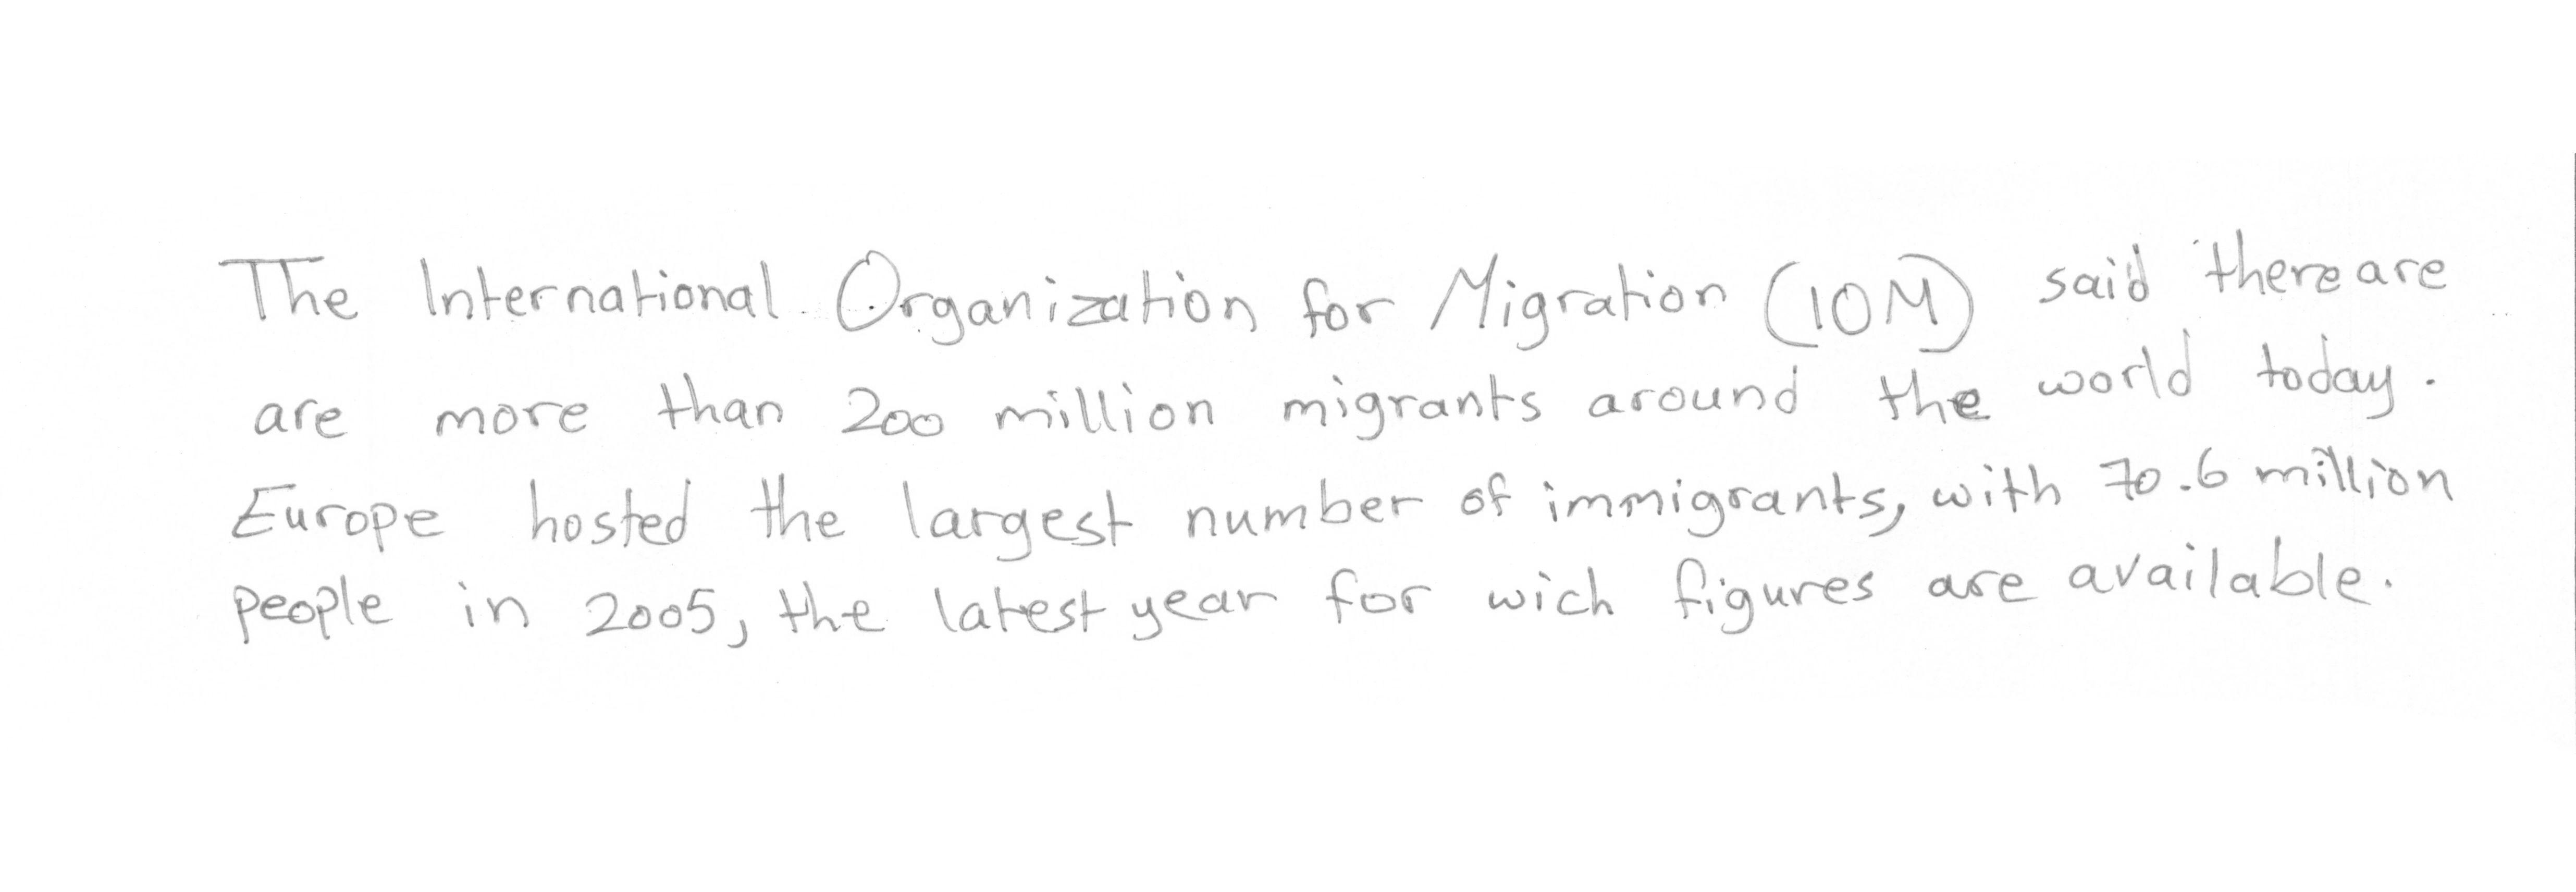 The International Organization for Migration (IOM) said there are
are more than 200 million migrants around the world today.
Europe hosted the largest number of immigrants, with 70.6 million
people in 2005, the latest year for wich figures are available.